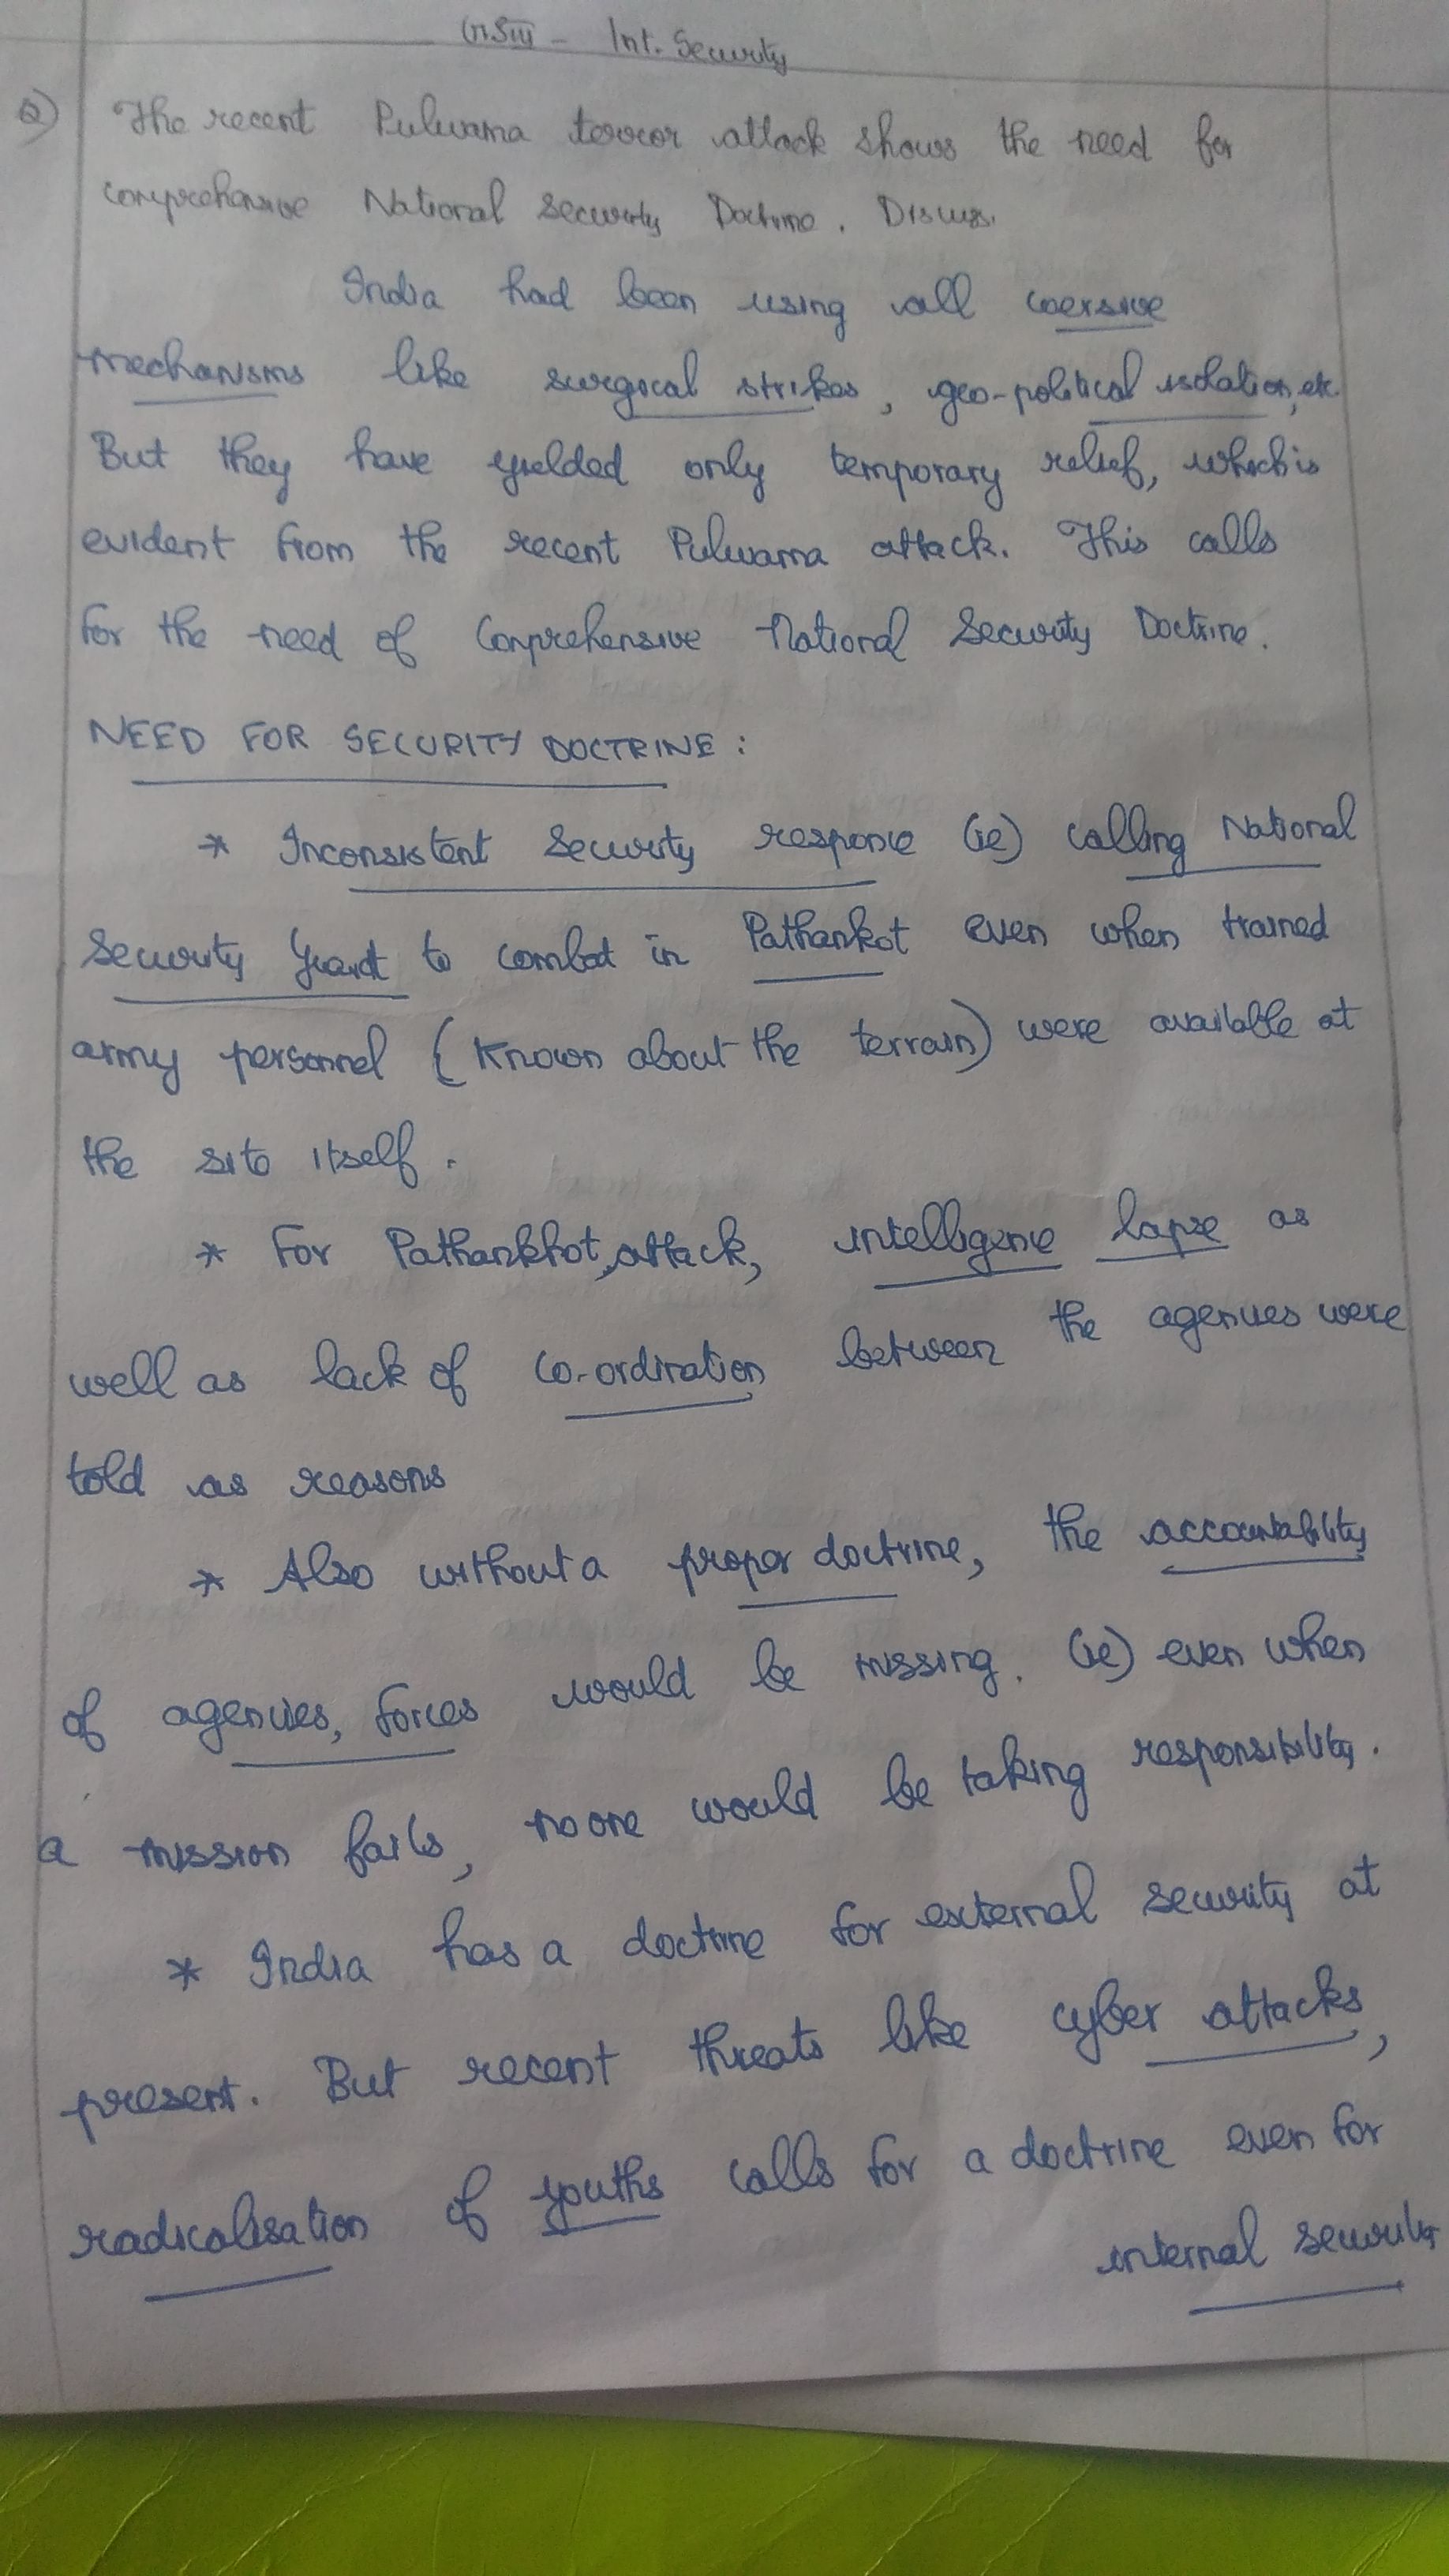 GSIII - Int. Security
Q) The recent Pulwama terror attack shows the need for
comprehensive National Security Doctrine. Discuss.
India had been using all coersive
mechanisms like surgical strikes, geo-political isolation, etc.
But they have yielded only temporary relief, which is
evident from the recent Pulwama attack. This calls
for the need of Comprehensive National Security Doctrine.
NEED FOR SECURITY DOCTRINE :
* Inconsistent Security response (ie) calling National
Security Guard to combat in Pathankot even when trained
army personnel (known about the terrain) were available at
the site itself.
* For Pathankhot attack, intelligence lapse as
well as lack of co-ordination between the agencies were
told as reasons
* Also without a proper doctrine, the accountability
of agencies, forces would be missing. (ie) even when
a mission fails, no one would be taking responsibility.
* India has a doctrine for external security at
present. But recent threats like cyber attacks,
radicalisation of youths calls for a doctrine even for
internal security